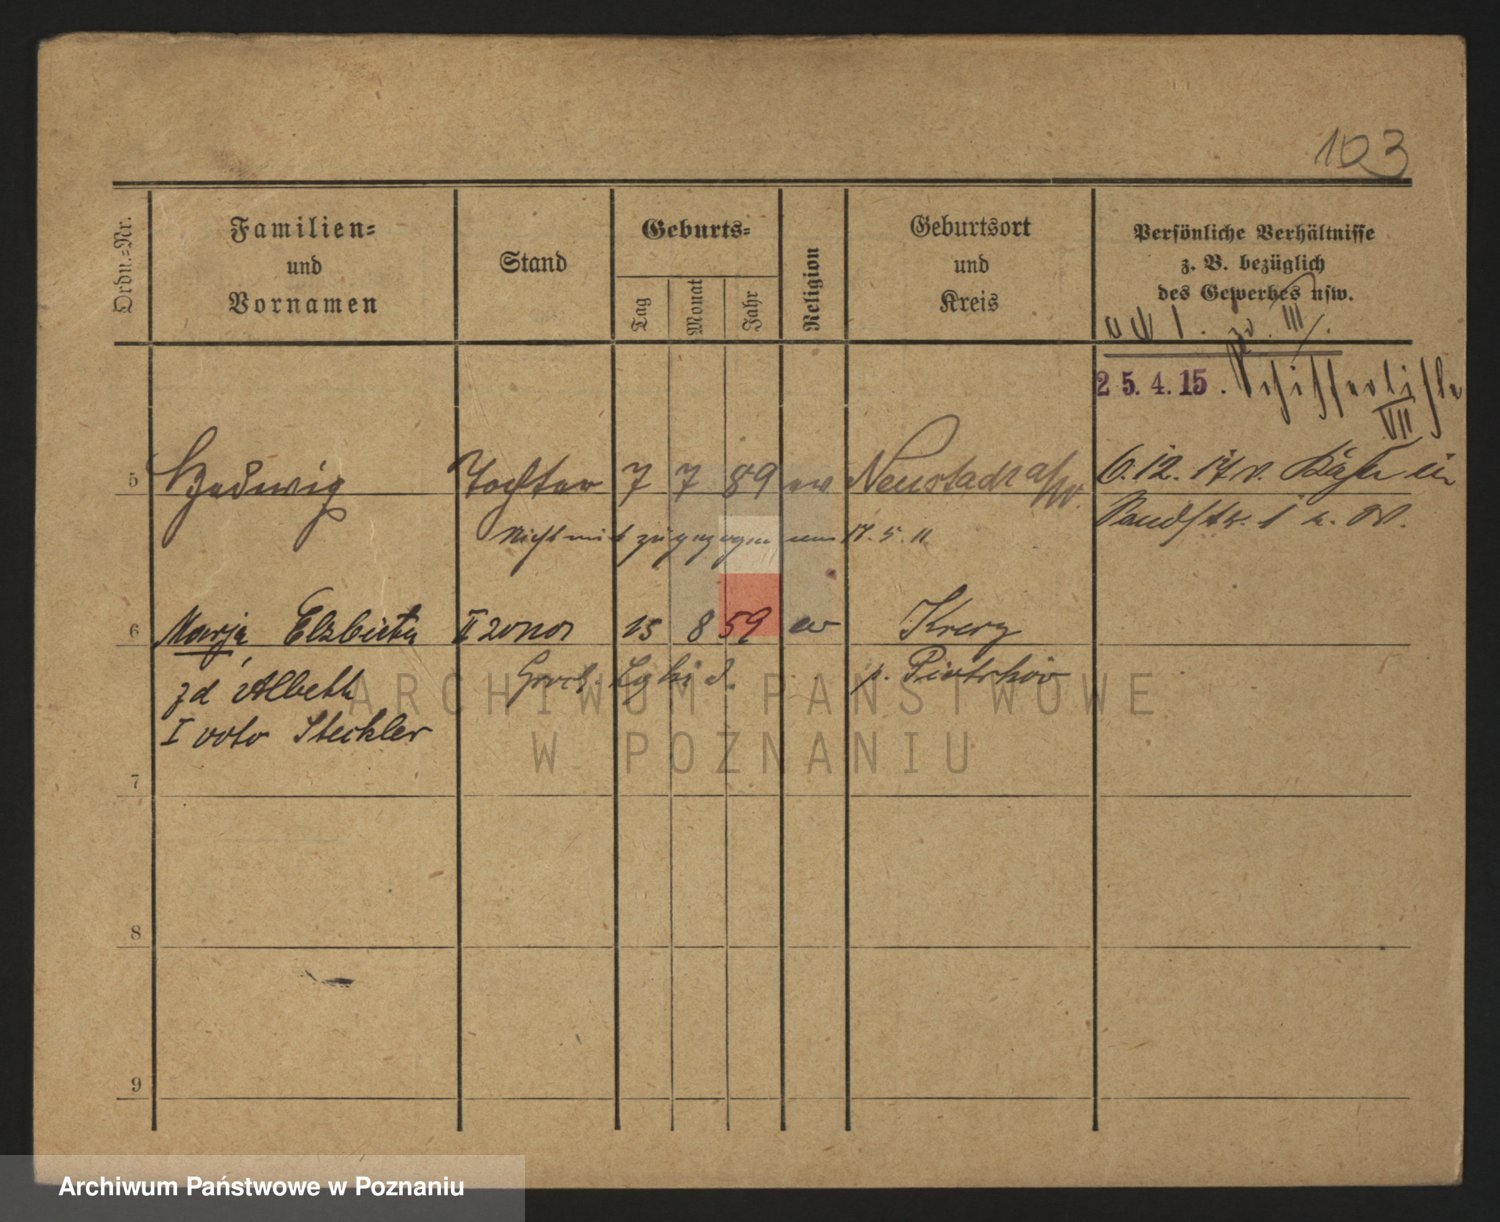 103
Ordn.-Nr.
Familien-
und
Vornamen
Stand
Geburts-
Tag
Monat
Jahr
Religion
Geburtsort
und
Kreis
Persönliche Verhältnisse
z. B. bezüglich
des Gewerbes usw.
25.4.15.
VII
5 Hedwig Tochter 7 7 89 ev Neustadt a/W.
6.12.17 v. in
Nicht mit zugezogen 17.5.11
6 Marja Elżbieta II żona 15 8 59 ew
zd Albeth p. Piotrków
I voto Steckler
7
8
9
ARCHIWUM PAŃSTWOWE
W POZNANIU
Archiwum Państwowe w Poznaniu